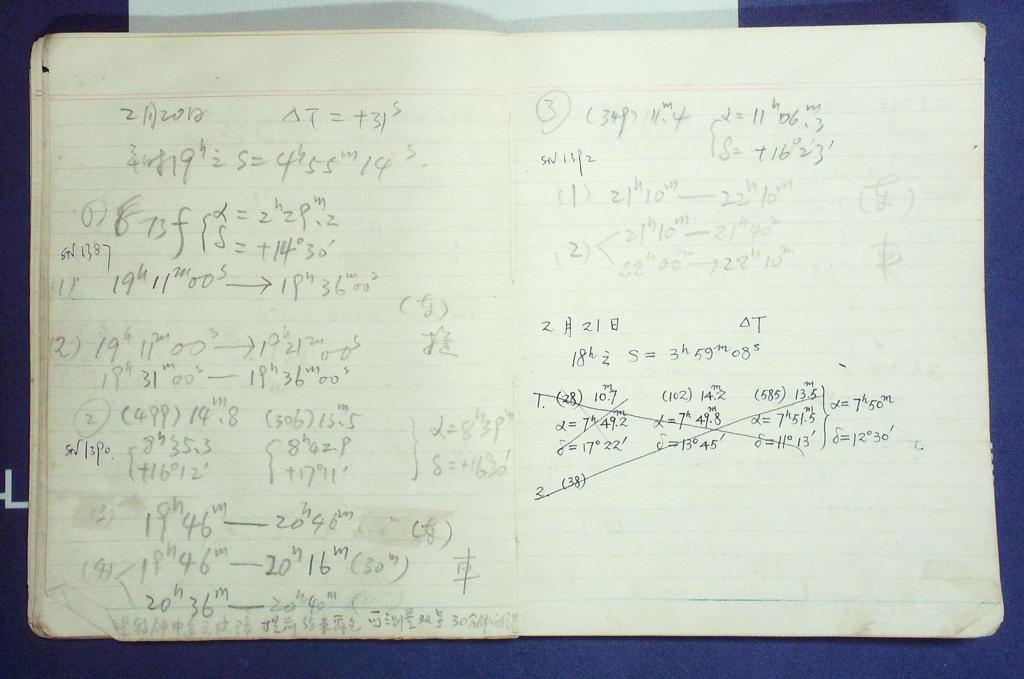 2月20日 ΔT = +31ˢ
19ʰ之 S = 4ʰ55ᵐ14ˢ.
① 873f { α = 2ʰ29ᵐ.2
SN 1387 δ = +14°30′
(1) 19ʰ11ᵐ00ˢ → 19ʰ36ᵐ00ˢ
(东)
(2) 19ʰ11ᵐ00ˢ → 19ʰ21ᵐ00ˢ
19ʰ31ᵐ00ˢ — 19ʰ36ᵐ00ˢ
② (499) 14ᵐ.8 (306) 13ᵐ.5
SN 1390. { 8ʰ35.3 { 8ʰ42.9 } α = 8ʰ39ᵐ
+16°12′ +17°11′ δ = +16°30′
(3) 19ʰ46ᵐ — 20ʰ40ᵐ (东)
(4) 19ʰ46ᵐ — 20ʰ16ᵐ (30ᵐ) 車
20ʰ36ᵐ — 20ʰ40ᵐ
可测量 30分
③ (349) 11ᵐ.4 { α = 11ʰ06ᵐ.3
SN 1392 δ = +16°23′
(1) 21ʰ10ᵐ — 22ʰ10ᵐ (东)
(2) < 21ʰ10ᵐ — 21ʰ40ᵐ
22ʰ00ᵐ → 22ʰ10ᵐ 車
2月21日 ΔT
18ʰ之 S = 3ʰ59ᵐ08ˢ
1. (28) 10ᵐ.7 (102) 14ᵐ.2 (585) 13ᵐ.5
α = 7ʰ49ᵐ.2 α = 7ʰ49ᵐ.8 α = 7ʰ51ᵐ.5 } α = 7ʰ50ᵐ
δ = 17°22′ δ = 13°45′ δ = 11°13′ δ = 12°30′
2. (38)